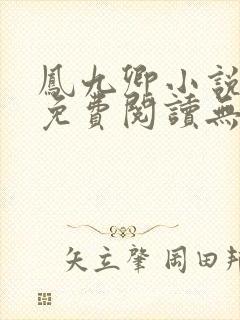 鳳九卿小說
免費閱讀無
矢立肇 岡田邦